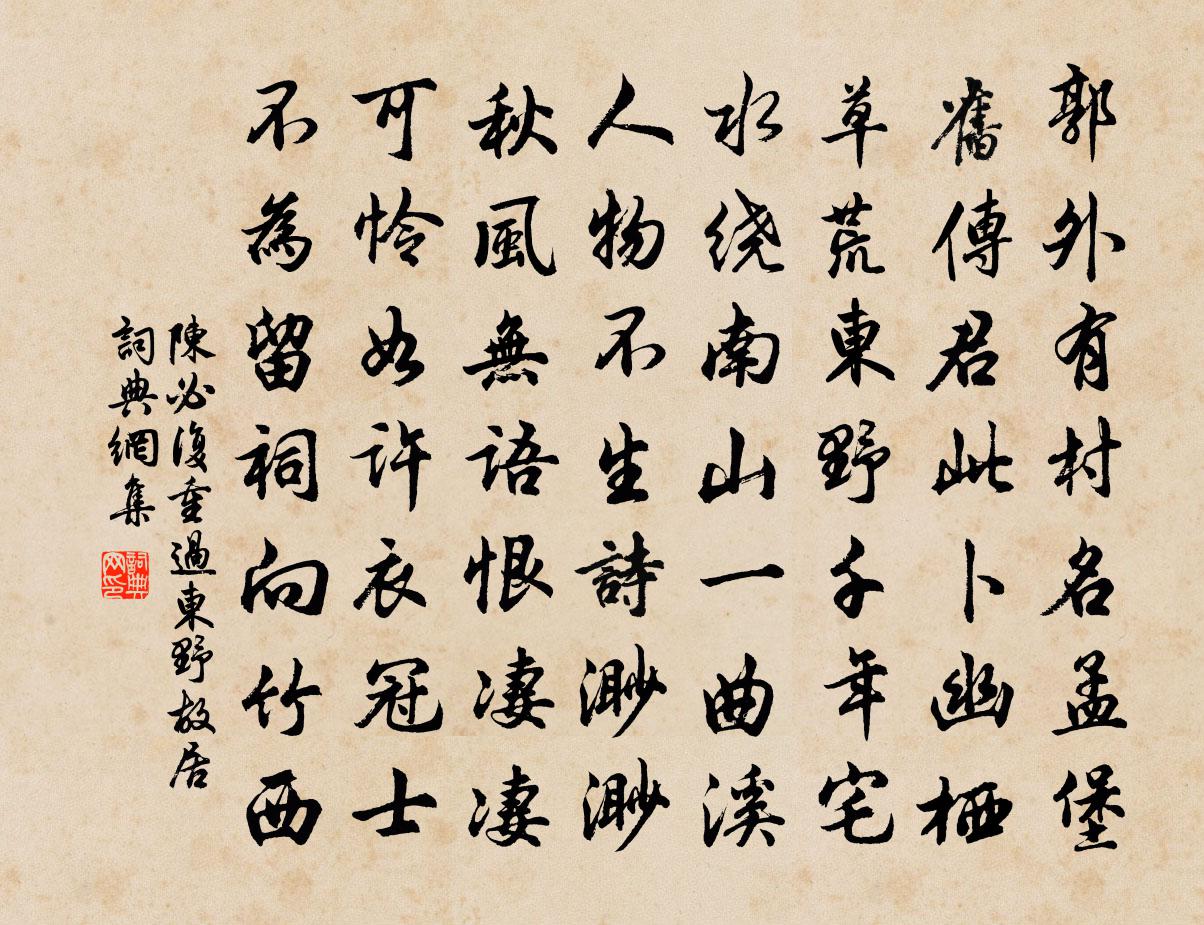 郭外有村名孟堡
舊傳君此卜幽栖
草荒東野千年宅
水绕南山一曲溪
人物不生詩渺渺
秋風無語恨凄凄
可怜如许衣冠士
不為留祠向竹西
陳必復重過東野故居
詞典網集
詞典网印